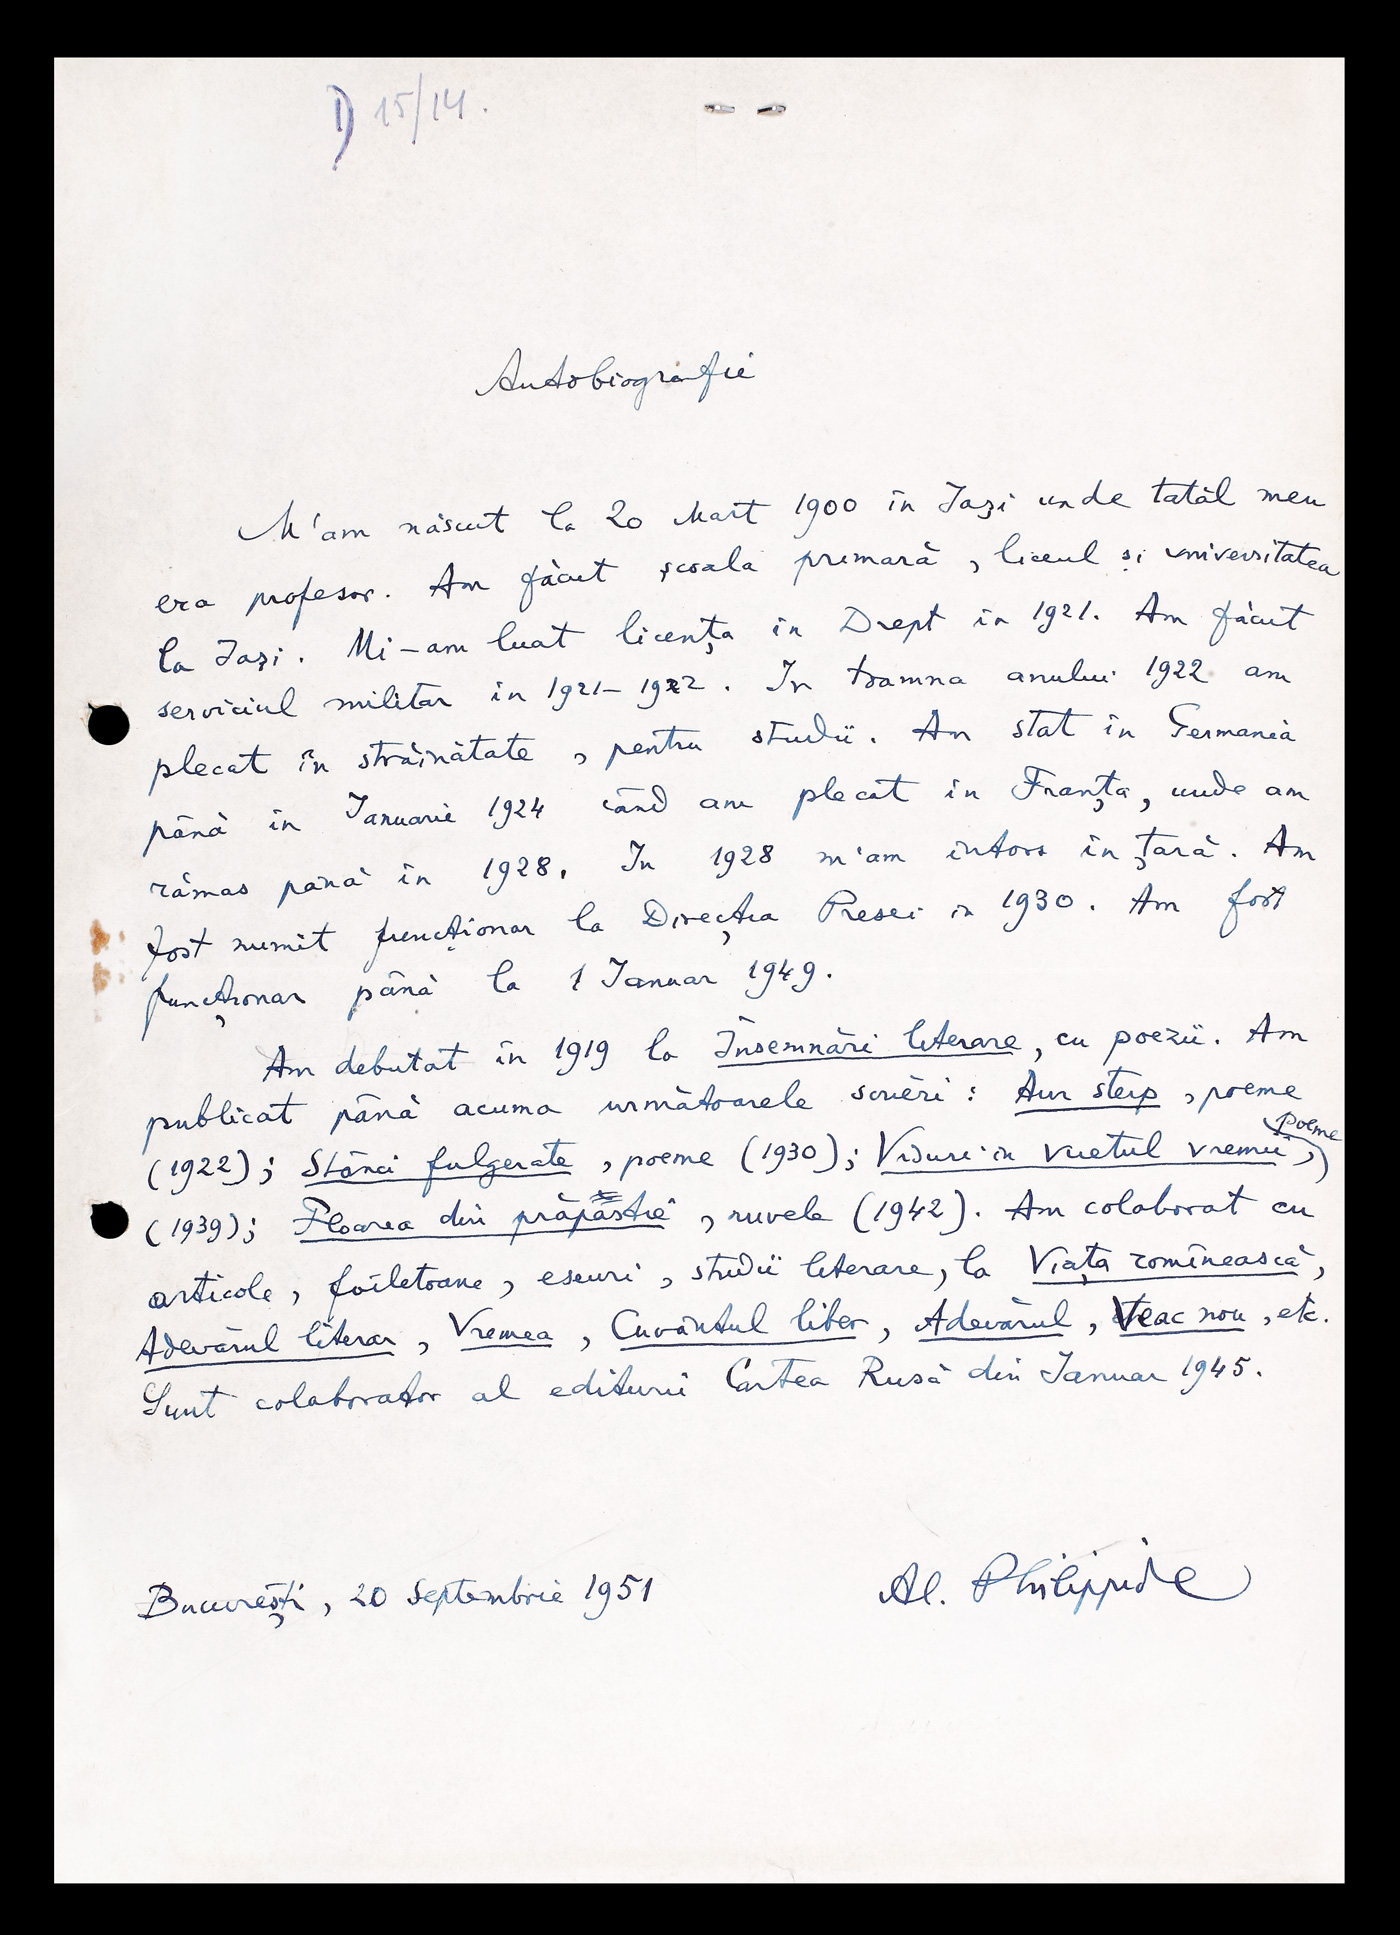 I) 15/14.
Autobiografie
M'am născut la 20 Mart 1900 în Iași unde tatăl meu
era profesor. Am făcut școala primară, liceul și universitatea
la Iași. Mi-am luat licența în Drept în 1921. Am făcut
serviciul militar în 1921-1922. In toamna anului 1922 am
plecat în străinătate, pentru studii. Am stat în Germania
până în Ianuarie 1924 când am plecat în Franța, unde am
rămas până în 1928. In 1928 m'am intors în țară. Am
fost numit funcționar la Direcția Presei în 1930. Am fost
funcționar până la 1 Ianuar 1949.
Am debutat în 1919 la Însemnări literare, cu poezii. Am
publicat până acuma următoarele scrieri: Aur sterp, poeme
(1922); Stânci fulgerate, poeme (1930); Visuri în vuetul vremii, poeme
(1939); Floarea din prăpastie, nuvele (1942). Am colaborat cu
articole, foiletoane, eseuri, studii literare, la Viața romînească,
Adevărul literar, Vremea, Cuvântul liber, Adevărul, Veac nou, etc.
Sunt colaborator al editurii Cartea Rusă din Ianuar 1945.
București, 20 Septembrie 1951
Al. Philippide